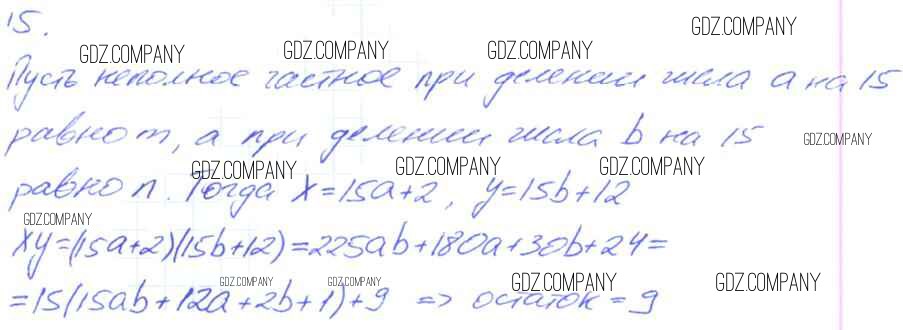 15.
GDZ.COMPANY GDZ.COMPANY GDZ.COMPANY GDZ.COMPANY
Пусть неполное частное при делении числа a на 15
равно m, а при делении числа b на 15 GDZ.COMPANY
GDZ.COMPANY GDZ.COMPANY GDZ.COMPANY
равно n. Тогда x=15a+2, y=15b+12
GDZ.COMPANY
xy=(15a+2)(15b+12)=225ab+180a+30b+24=
GDZ.COMPANY GDZ.COMPANY GDZ.COMPANY GDZ.COMPANY
=15(15ab+12a+2b+1)+9 => остаток = 9